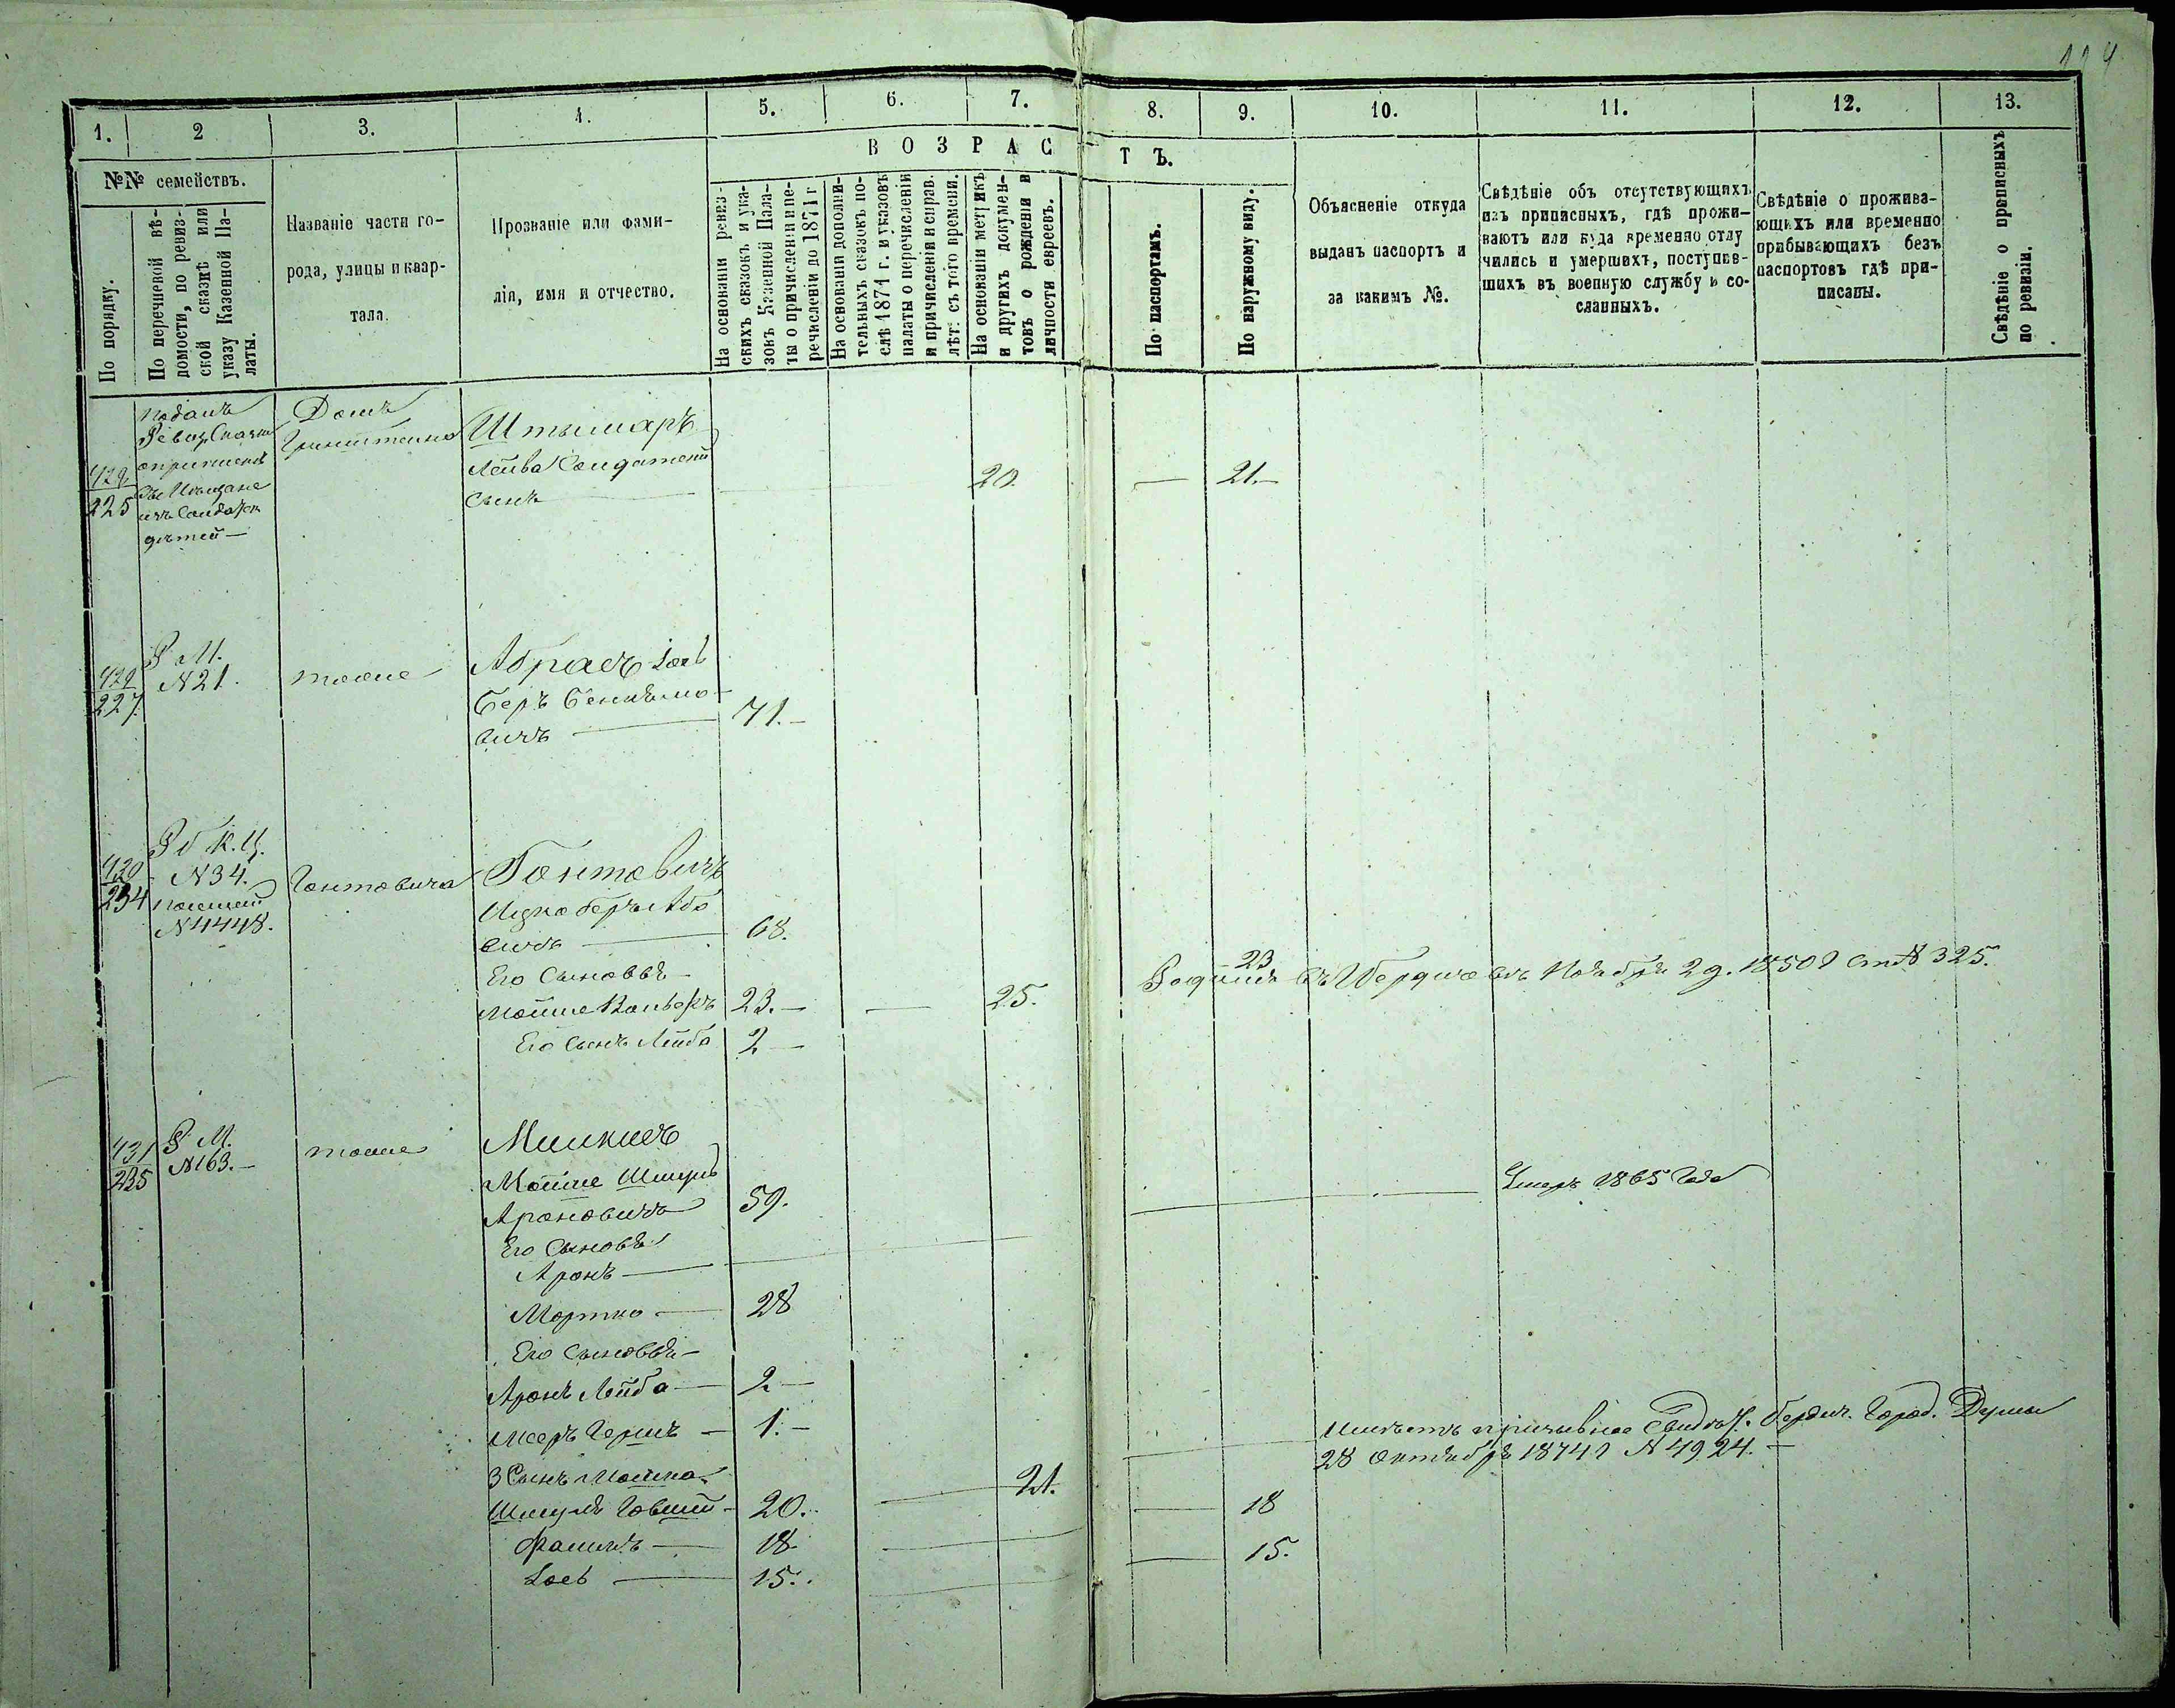 114
1. 2 3. 4. 5. 6. 7. 8. 9. 10. 11. 12. 13.
В О З Р А С Т Ъ.
№№ семействъ.
По порядку.
По перечневой вѣ-
домости, по ревиз-
ской сказкѣ или
указу Казенной Па-
латы.
Названіе части го-
рода, улицы и квар-
тала.
Прозваніе или фами-
лія, имя и отчество.
На основаніи ревиз-
скихъ сказокъ и ука-
зокъ Казенной Пала-
ты о причисленіи и пе-
речисленіи до 1871 г
На основаніи дополни-
тельныхъ сказокъ по-
слѣ 1871 г. и указовъ
палаты о перечисленіи
и причисленіи и справ.
лѣт. съ того времени.
На основаніи метрикъ
и другихъ докумен-
товъ о рожденіи и
личности евреевъ.
По паспортамъ.
По наружному виду.
Объясненіе откуда
выданъ паспортъ и
за какимъ №.
Свѣдѣніе объ отсутствующихъ
изъ приписныхъ, гдѣ прожи-
ваютъ или куда временно отлу
чились и умершихъ, поступив-
шихъ въ военную службу и со-
сланныхъ.
Свѣдѣніе о прожива-
ющихъ или временно
прибывающихъ безъ
паспортовъ гдѣ при-
писаны.
Свѣдѣніе о приписныхъ
по ревизіи.
429
225
подалъ
Ревиз. Сказк
изъ Солдатск
дѣтей —
Домъ
Штыммаръ
Лейба Солдатскій
Сынъ — 20. — 21. —
429
227
Р М.
N 21.
тоже
Абрамъ Іось
Беръ Беньямо-
вичъ — 71. —
430
234
N 34.
N 4448.
Гонтовича
Гонтовичъ
Ицко Беръ Або
вичъ — 68.
Его Сыновья
Мойше Вольфъ 23. — 25. 23
Родился въ Бердичевѣ Ноября 2 д. 1850 г ст N 325.
Его Сынъ Лейба 2 —
431
235
Р М.
N 163. —
тоже
Милкисъ
Мойше Шмуль
Ароновичъ 59. — Умеръ 1865 Года
Его Сыновья
Аронъ —
Мортко — 28
Его Сыновья —
Аронъ Лейба — 2 —
Мееръ Гершъ — 1. —
Имѣетъ призывное Свидѣт. Бердич. Город. Думы
28 Октября 1874 г N 4924. —
3 Сынъ Мошка
Шмуль Говшій — 20. — 21. — 18
Фалинъ — 18 — 15.
Іось — 15.